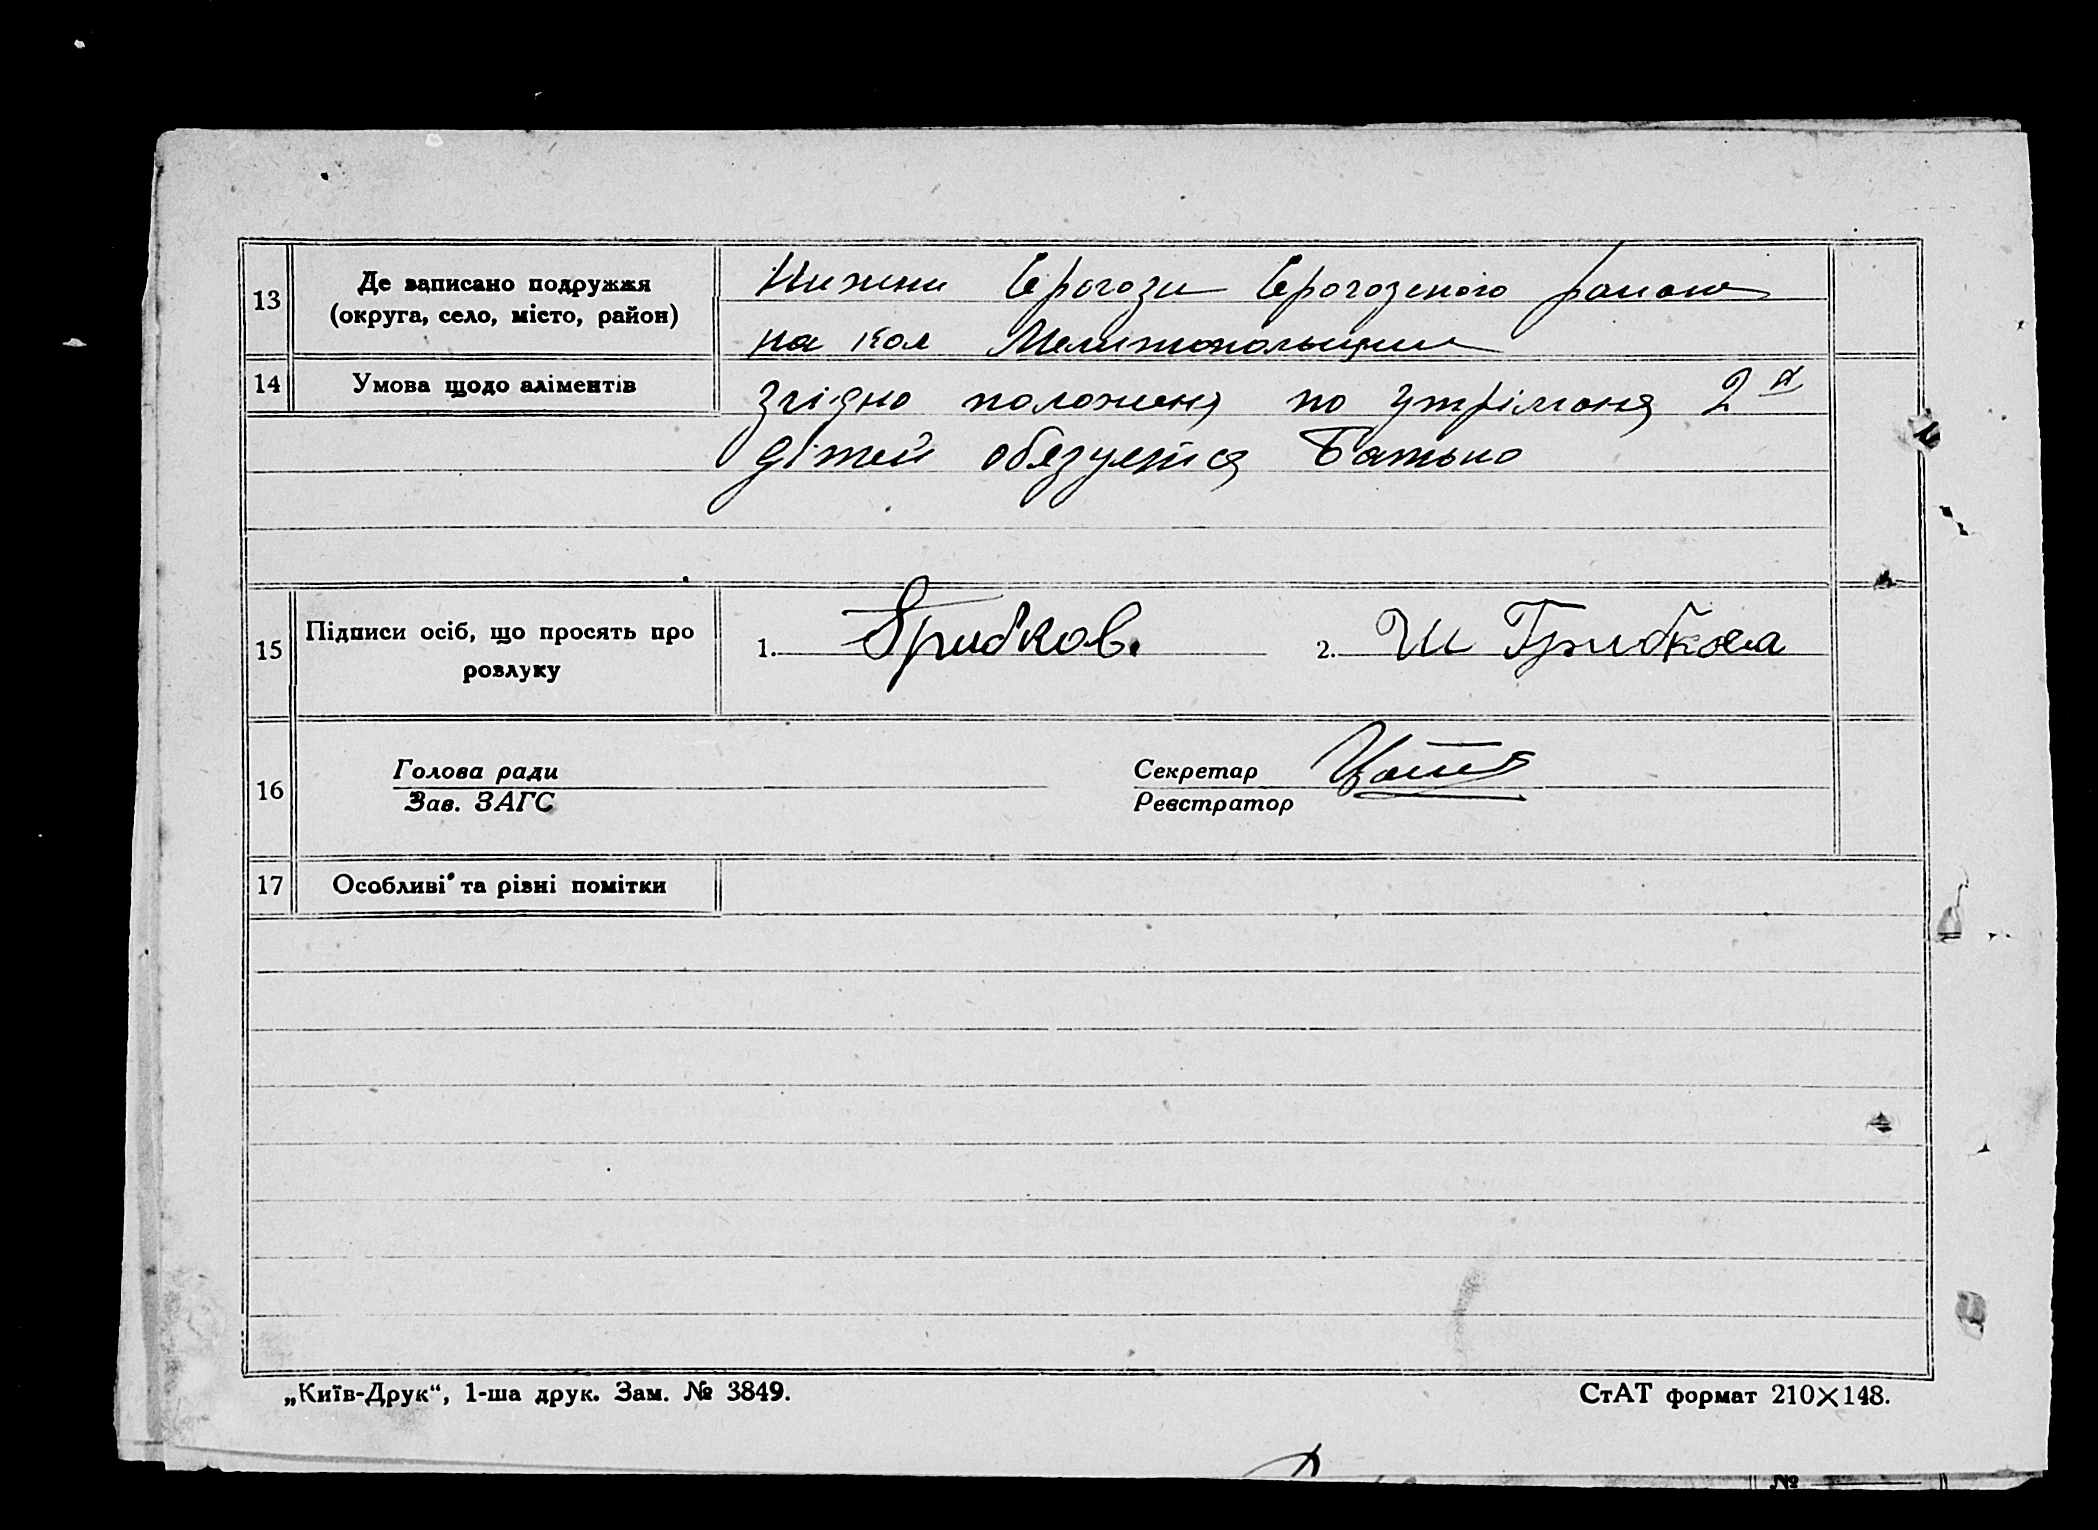 13
Де записано подружжя
(округа, село, місто, район)
Нижни Сірогози Сірогозского району
на кол Мелитопольщини
14
Умова щодо аліментів
згідно положеня по утріманя 2х
дітей обязуется Батько
15
Підписи осіб, що просять про
розлуку
1. Грибков.
2. Ш Грибкова
16
Голова ради
Зав. ЗАГС
Секретар
Реєстратор
17
Особливі та різні помітки
„Київ-Друк“, 1-ша друк. Зам. № 3849.
СтАТ формат 210×148.
№